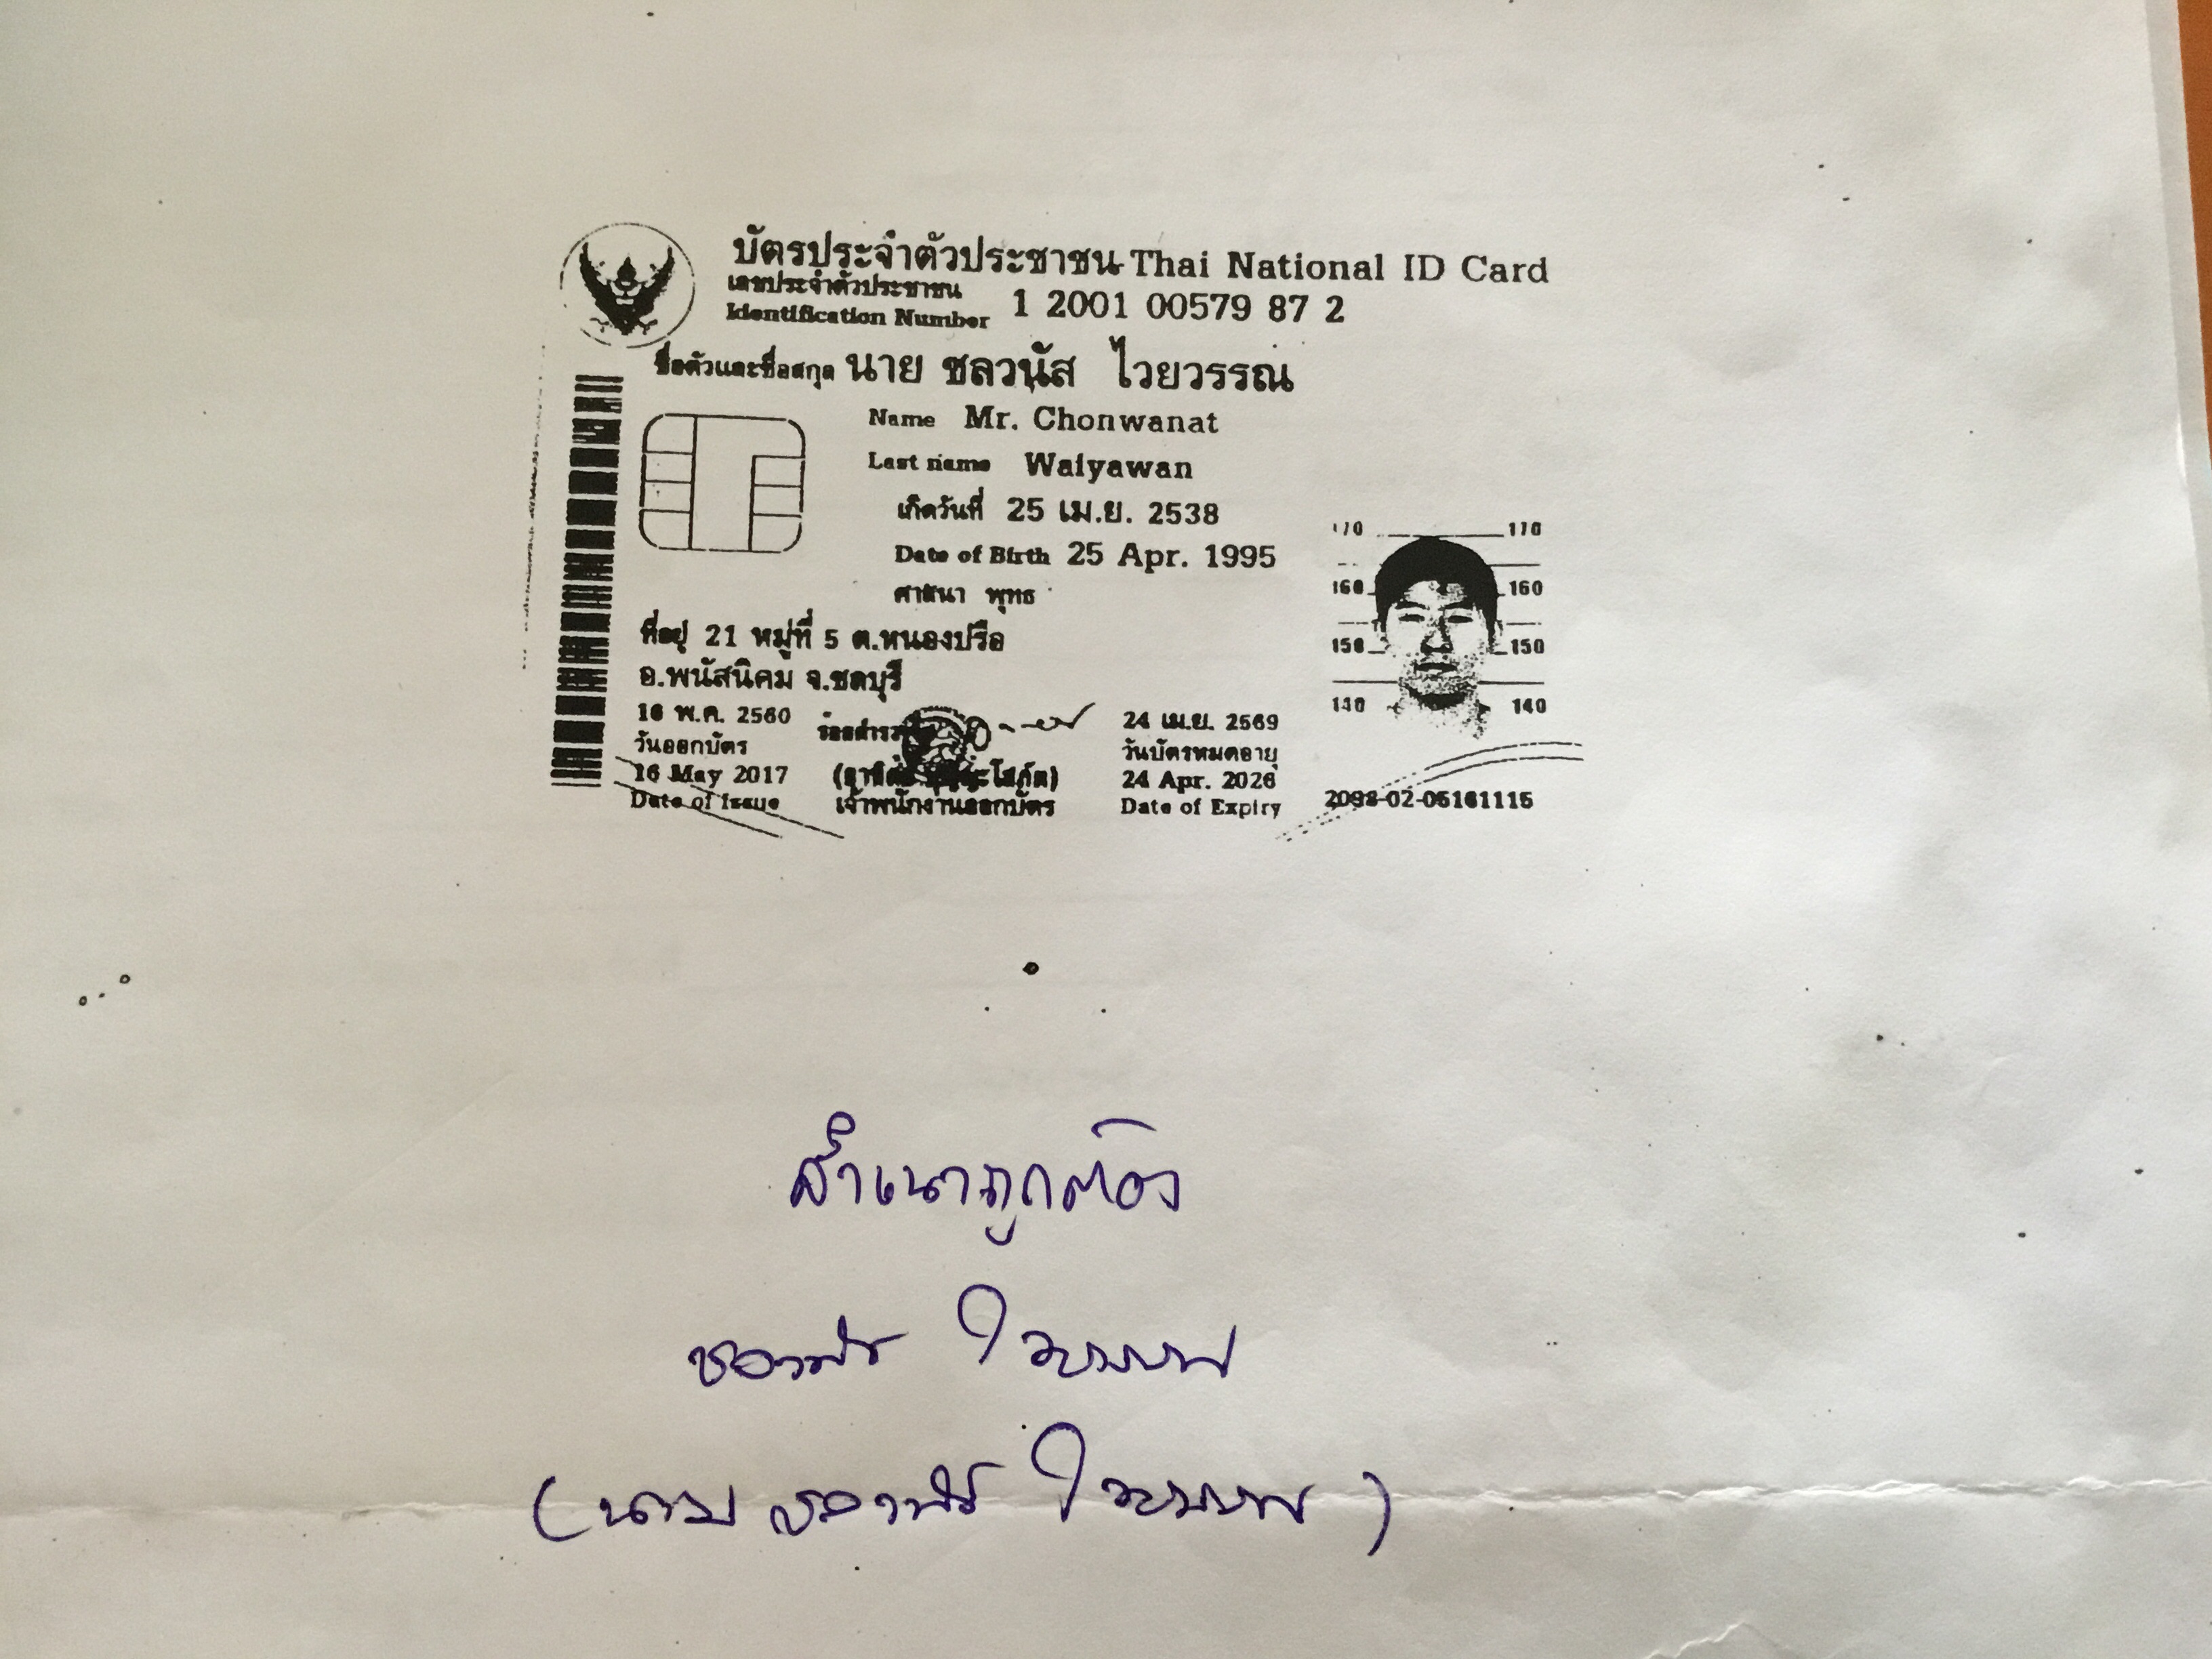 บัตรประจำตัวประชาชน Thai National ID Card
เลขประจำตัวประชาชน
Identification Number 1 2001 00579 87 2
ชื่อตัวและชื่อสกุล นาย ชลวนัส ไวยวรรณ
Name Mr. Chonwanat
Last name Waiyawan
เกิดวันที่ 25 เม.ย. 2538
Date of Birth 25 Apr. 1995
ศาสนา พุทธ
ที่อยู่ 21 หมู่ที่ 5 ต.หนองปรือ
อ.พนัสนิคม จ.ชลบุรี
170 170
160 160
150 150
140 140
16 พ.ค. 2560
วันออกบัตร
16 May 2017
Date of Issue
เจ้าพนักงานออกบัตร
24 เม.ย. 2569
วันบัตรหมดอายุ
24 Apr. 2026
Date of Expiry
2098-02-05161115
สำเนาถูกต้อง
ชลวนัส ไวยวรรณ
(นาย ชลวนัส ไวยวรรณ)